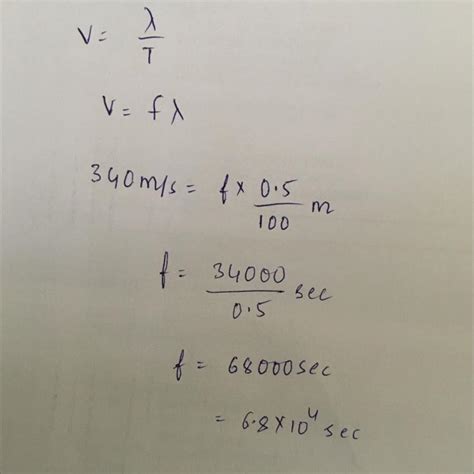 V = λ/T
V = fλ
340 m/s = f × 0.5/100 m
f = 34000/0.5 sec
f = 68000 sec
= 6.8 × 10⁴ sec